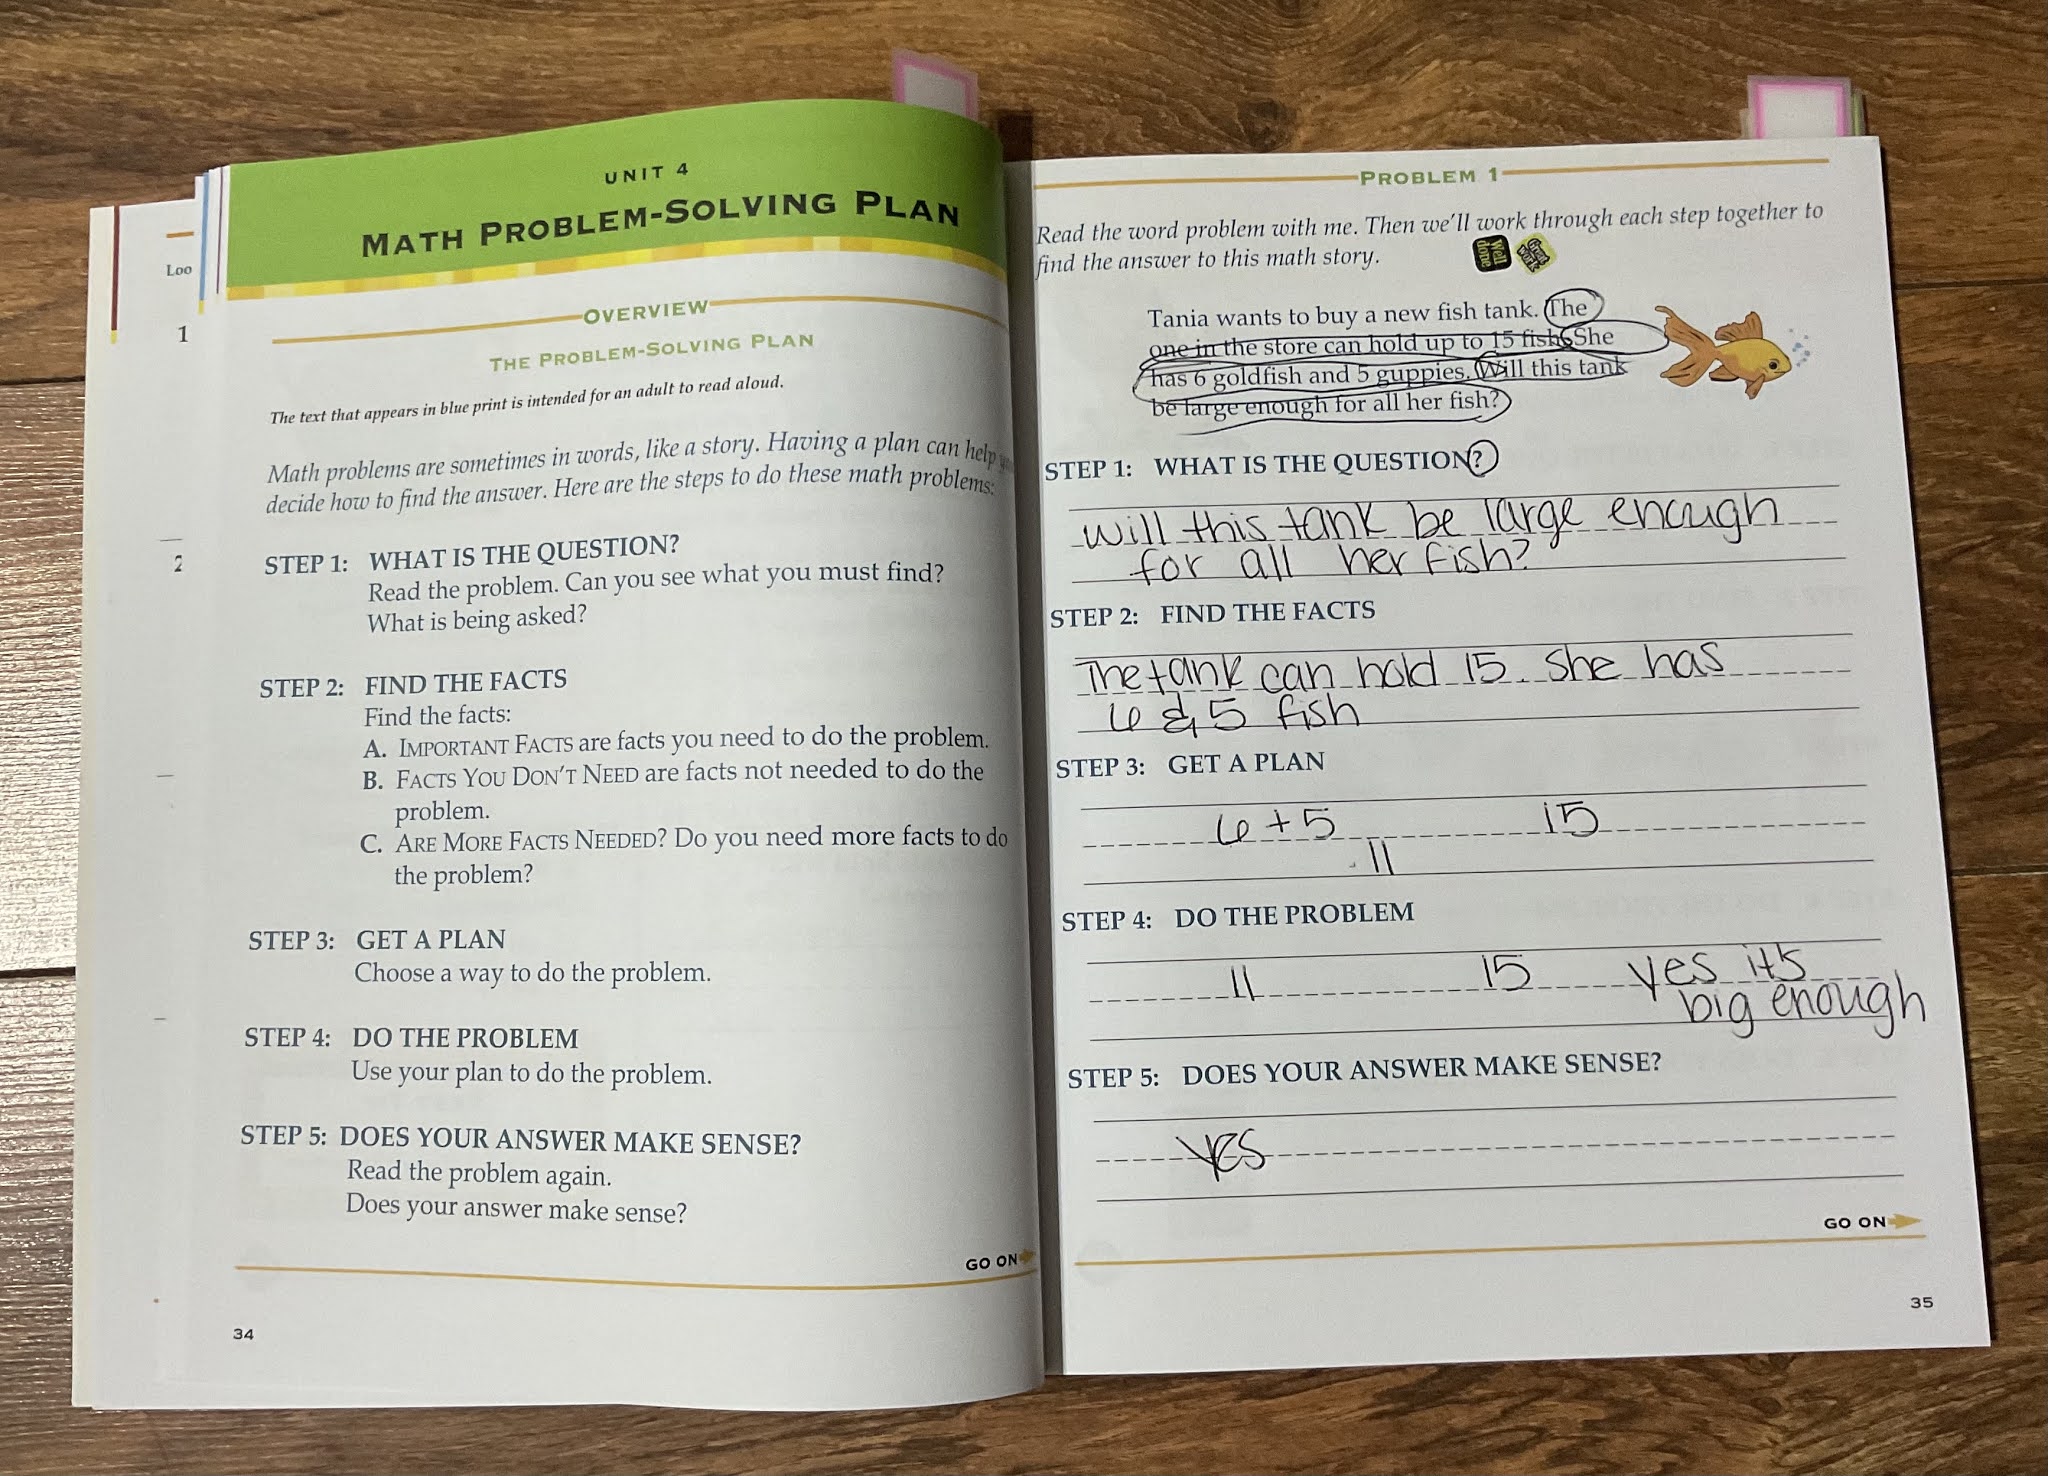 Loo
1
2
UNIT 4
MATH PROBLEM-SOLVING PLAN
OVERVIEW
THE PROBLEM-SOLVING PLAN
The text that appears in blue print is intended for an adult to read aloud.
Math problems are sometimes in words, like a story. Having a plan can help you
decide how to find the answer. Here are the steps to do these math problems:
STEP 1: WHAT IS THE QUESTION?
Read the problem. Can you see what you must find?
What is being asked?
STEP 2: FIND THE FACTS
Find the facts:
A. IMPORTANT FACTS are facts you need to do the problem.
B. FACTS YOU DON'T NEED are facts not needed to do the
problem.
C. ARE MORE FACTS NEEDED? Do you need more facts to do
the problem?
STEP 3: GET A PLAN
Choose a way to do the problem.
STEP 4: DO THE PROBLEM
Use your plan to do the problem.
STEP 5: DOES YOUR ANSWER MAKE SENSE?
Read the problem again.
Does your answer make sense?
GO ON
34
PROBLEM 1
Read the word problem with me. Then we'll work through each step together to
find the answer to this math story.
Well
done
Great
work
Tania wants to buy a new fish tank. The
one in the store can hold up to 15 fish. She
has 6 goldfish and 5 guppies. Will this tank
be large enough for all her fish?
STEP 1: WHAT IS THE QUESTION?
will this tank be large enough
for all her fish?
STEP 2: FIND THE FACTS
The tank can hold 15. she has
6 & 5 fish
STEP 3: GET A PLAN
6 + 5 15
11
STEP 4: DO THE PROBLEM
11 15 yes it's
big enough
STEP 5: DOES YOUR ANSWER MAKE SENSE?
yes
GO ON
35